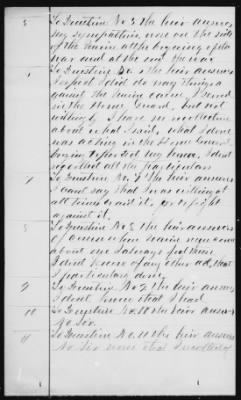 5 To Question No 5 the heir answers
my sympathies were on the side
of the Union at the beginning of the
war and at the end the war.
To Question No 6 the heir answers
I expect I did do any thing a
gainst the Union cause, I served
in the Home Guard, but not
willingly I have no recollection
about what I said, what I done
was acting in the Home Guard
I don't
recollect all the particulars
7 To Question No 7 the heir answers
I cant say that I was willing at
all times to aid it, or to fight
against it.
8 To Question No 8 the heir answers
of course when Union men come
about me I always fed them
I don't know of any other act, that
I particularly done,
9 To Question No 9 the heir answers
I don't know that I had.
10 To Question No 10 the heir answers
No Sir.
11 To Question No 11 the heir answers
No Sir none that I recollect of